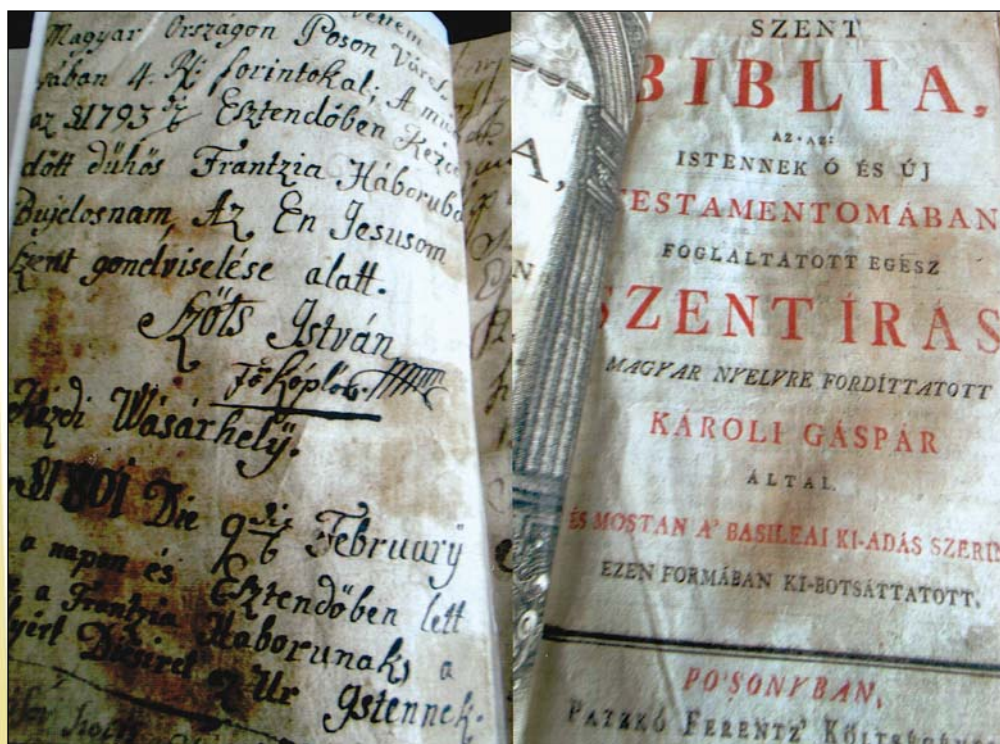 vettem
Magyar Országon Poson Város
sában 4. R: forintokal; A mi
az 1793 Esztendőben Kezd
dött dühös Frantzia Háborub
Bujdosnam, Az Én Jesusom
szent gondviselése alatt.
Szőts István
Fő káplár.
Kézdi Wásárhelÿ.
1801 Die 9 February
a napon és Esztendőben lett
a Frantzia Haborunak, a
Ditsiret Ur Istennek.
A,
N
SZENT
BIBLIA,
AZ-AZ:
ISTENNEK Ó ÉS ÚJ
TESTAMENTOMÁBAN
FOGLALTATOTT EGÉSZ
SZENT ÍRÁS
MAGYAR NYELVRE FORDÍTTATOTT
KÁROLI GÁSPÁR
ÁLTAL.
ÉS MOSTAN A' BASILEAI KI-ADÁS SZERIN
EZEN FORMÁBAN KI-BOTSÁTTATOTT.
PO'SONYBAN,
PATZKÓ FERENTZ' KÖLTSÉGÉVEL